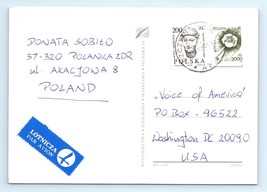 DONATA SOBIŁO
57-320 POLANICA ZDR
ul. AKACJOWA 8
POLAND
LOTNICZA
PAR AVION
200 zł
POLSKA
2000
"Voice of America"
PO BOX - 96522
Washington DC 20090
USA